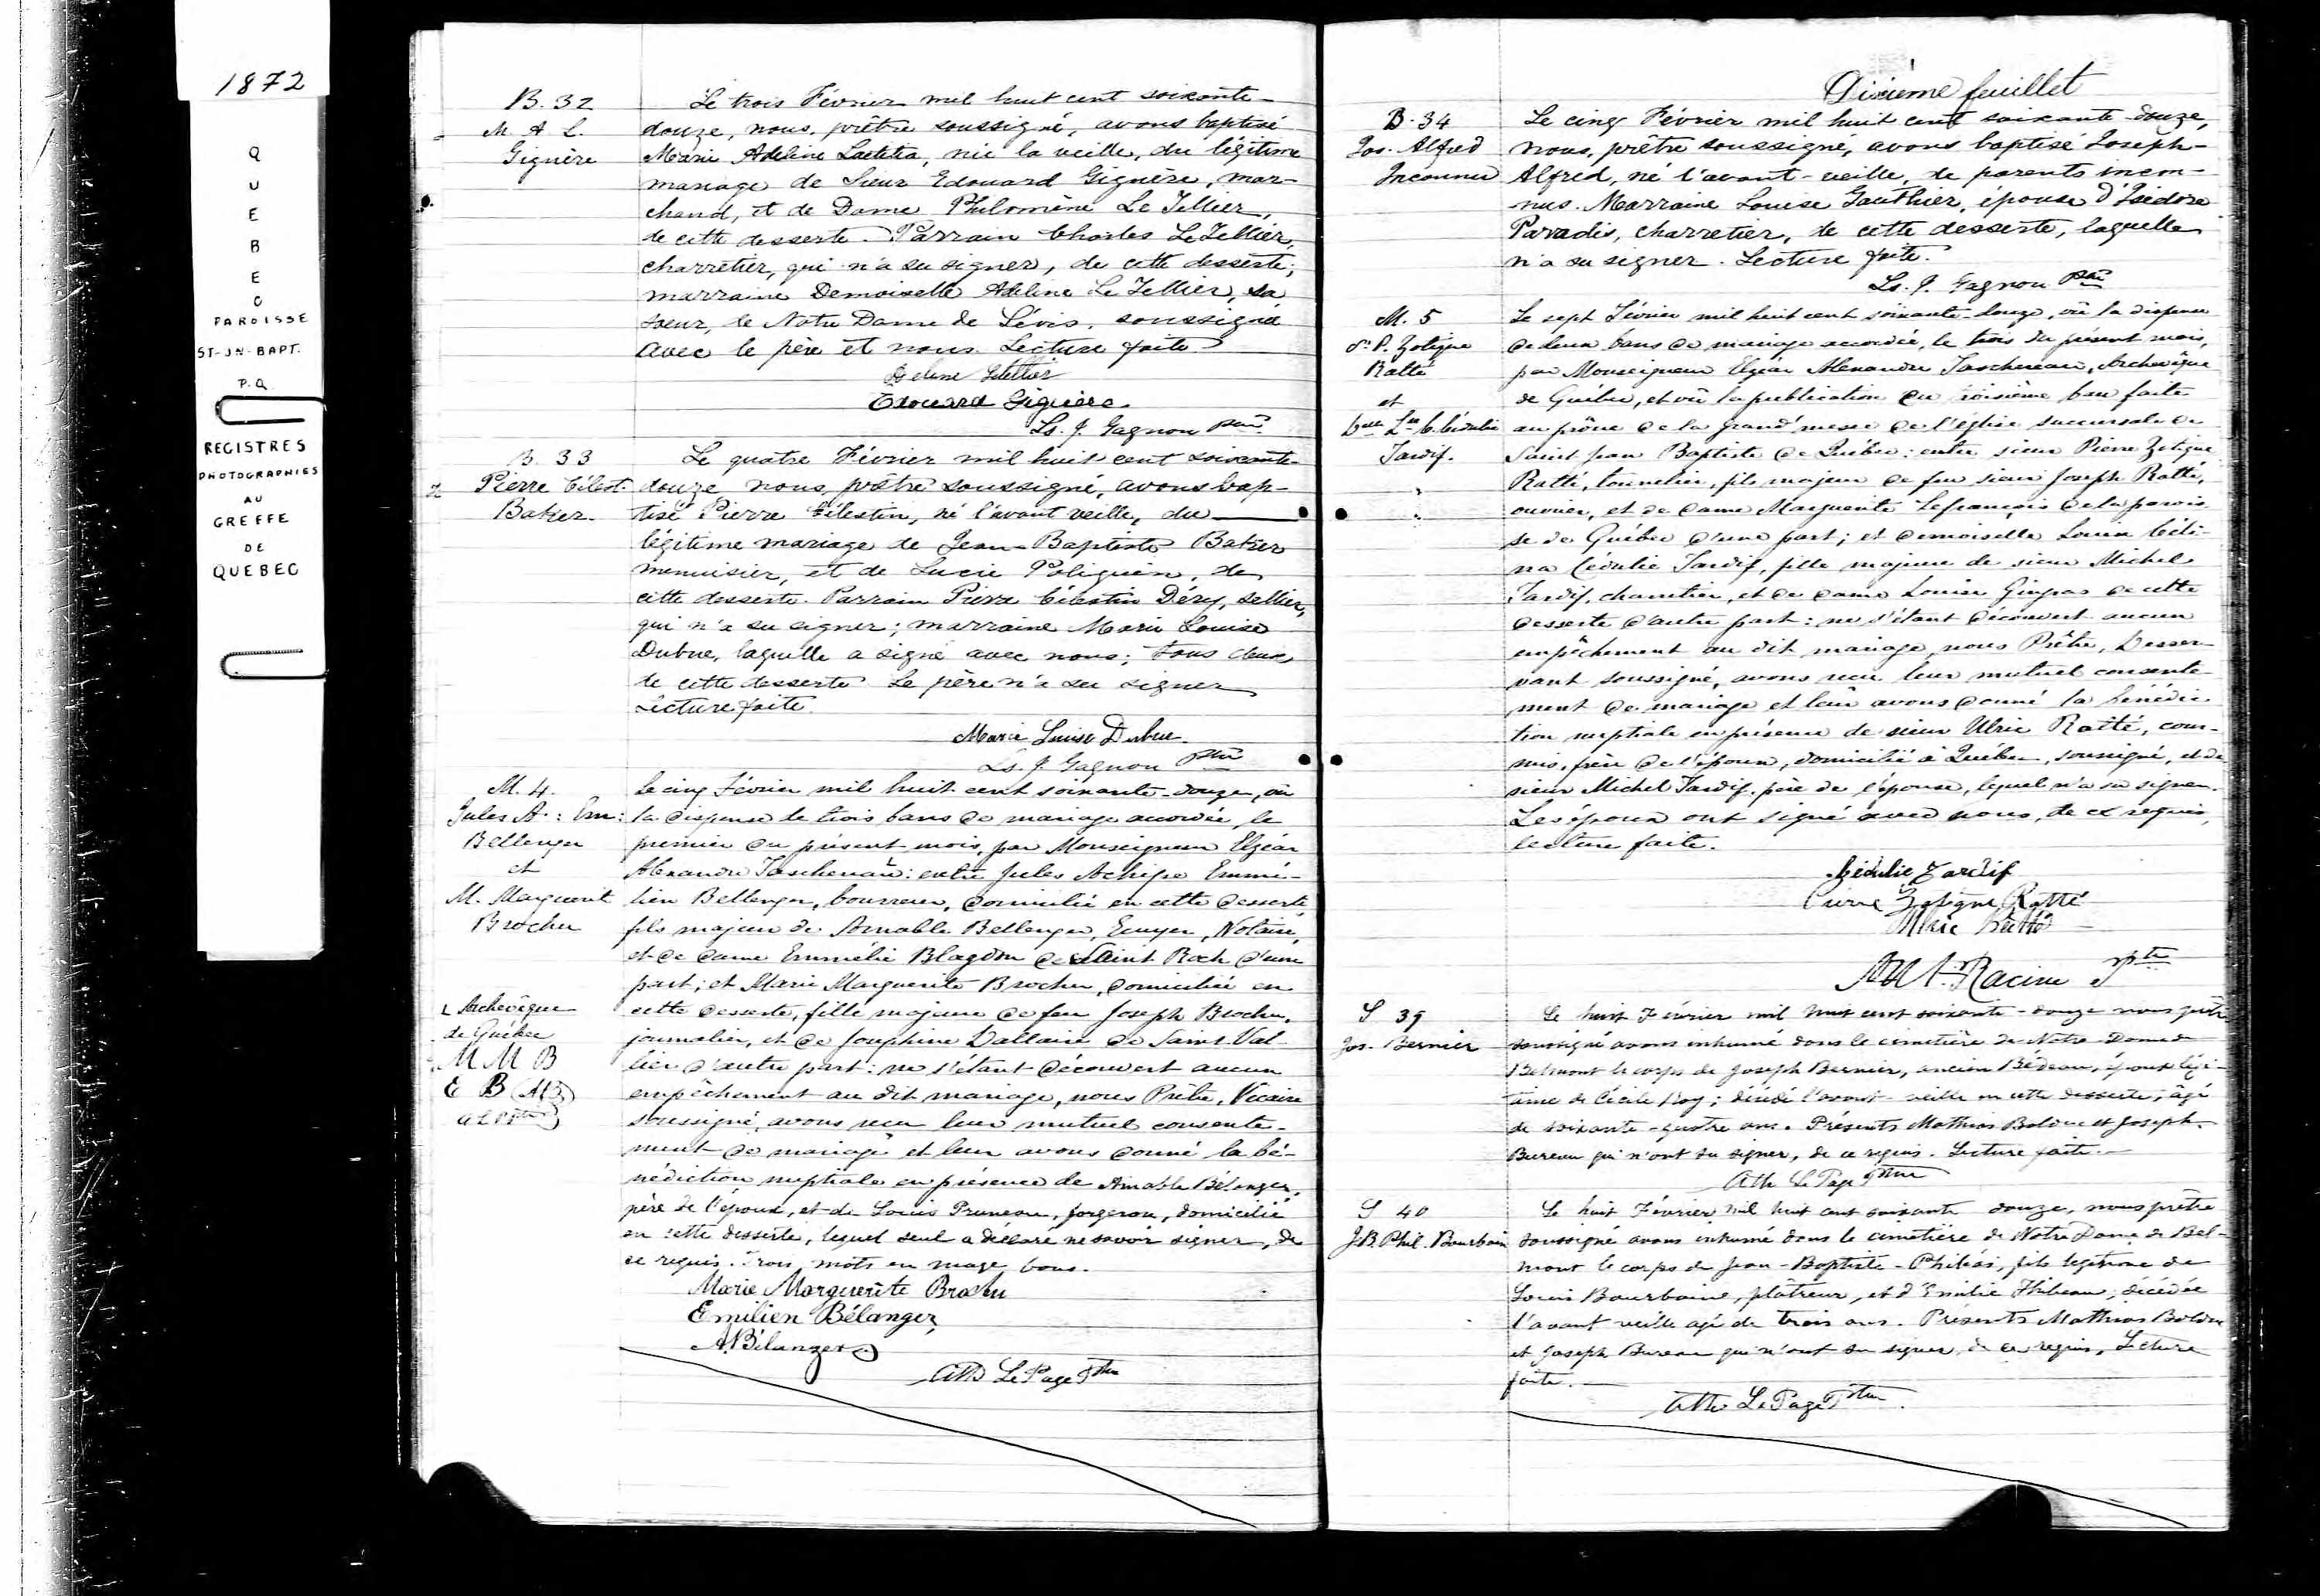 1872
QUEBEC
PAROISSE
ST-JN-BAPT.
P.Q.
REGISTRES
PHOTOGRAPHIES
AU
GREFFE
DE
QUEBEC
B. 32
M. A. L.
Giguère
Le trois Février mil huit cent soixante-
douze, nous, prêtre soussigné, avons baptisé
Marie Adeline Laetitia, née la veille, du légitime
mariage de Sieur Edouard Giguère, mar-
chand, et de Dame Philomène Le Tellier,
de cette desserte. Parrain Charles Le Tellier,
charretier, qui n'a su signer, de cette desserte;
marraine Demoiselle Adeline Le Tellier, sa
soeur, de Notre Dame de Lévis, soussignée
avec le père et nous. Lecture faite.
Adeline Letellier
Edouard Giguère
Ls. J. Gagnon Ptre
B. 33
Pierre Célest.
Batzer.
Le quatre Février mil huit cent soixante-
douze, nous, prêtre soussigné, avons bap-
tisé Pierre Célestin, né l'avant veille, du
légitime mariage de Jean-Baptiste Batzer
menuisier, et de Lucie Poliquin, de
cette desserte. Parrain Pierre Célestin Déry, sellier,
qui n'a su signer; marraine Marie Louise
Dubuc, laquelle a signé avec nous; tous deux
de cette desserte. Le père n'a su signer
Lecture faite.
Marie Louise Dubuc.
Ls. J. Gagnon Ptre
M. 4.
Jules A.: Em:
Bellenger
et
M. Marguerit
Brochu
Le cinq Février mil huit cent soixante-douze, vû
la dispense de trois bans de mariage accordée, le
premier du présent mois, par Monseigneur Elzéar
Alexandre Taschereau: entre Jules Achipe Emmi-
lien Bellenger, bourreur, domicilié en cette desserte,
fils majeur de Amable Bellenger, Ecuyer, Notaire,
et de dame Emmélie Blagdon de Saint Roch d'une
part; et Marie Marguerite Brochu, domiciliée en
cette desserte, fille majeure de feu Joseph Brochu,
journalier, et de Josephine Dallaire de Saint Val-
lier d'autre part: ne s'étant découvert aucun
empêchement au dit mariage, nous Prêtre, Vicaire
soussigné, avons reçu leur mutuel consente-
ment de mariage et leur avons donné la bé-
nédiction nuptiale en présence de Amable Bélanger,
père de l'époux, et de Louis Pruneau, forgeron, domicilié
en cette desserte, lequel seul a déclaré ne savoir signer, de
ce requis. Trois mots en marge bons.
Archevêque
de Québec
M M B
E B (AB)
A L Ptre
Marie Marguerite Brochu
Emilien Bélanger
A. Bélanger
Ath Le Page Ptre
Dixième feuillet
B. 34
Jos. Alfred
Inconnu
Le cinq Février mil huit cent soixante-douze,
nous, prêtre soussigné, avons baptisé Joseph-
Alfred, né l'avant-veille, de parents incon-
nus. Marraine Louise Gauthier, épouse d'Isidore
Paradis, charretier, de cette desserte, laquelle
n'a su signer. Lecture faite.
Ls. J. Gagnon Ptre
M. 5
Sr. P. Zotique
Ratté
et
Delle Lse C. Cédulie
Tardif.
Le sept Février mil huit cent soixante-douze, vû la dispense
de deux bans de mariage accordée, le trois du présent mois,
par Monseigneur Elzéar Alexandre Taschereau, Archevêque
de Québec, et vû la publication du troisième ban faite
au prône de la grand'messe de l'église succursale de
Saint Jean Baptiste de Québec: entre sieur Pierre Zotique
Ratté, tonnelier, fils majeur de feu sieur Joseph Ratté,
ouvrier, et de dame Marguerite Lefrançois de la parois-
se de Québec d'une part; et demoiselle Louise Céli-
na Cédulie Tardif, fille majeure de sieur Michel
Tardif, charretier, et de dame Louise Gingras de cette
desserte d'autre part: ne s'étant découvert aucun
empêchement au dit mariage, nous Prêtre, Desser-
vant soussigné, avons reçu leur mutuel consente-
ment de mariage et leur avons donné la bénédic-
tion nuptiale en présence de sieur Ulric Ratté, com-
mis, frère de l'époux, domicilié à Québec, soussigné, et de
sieur Michel Tardif, père de l'épouse, lequel n'a su signer.
Les époux ont signé avec nous, de ce requis,
lecture faite.
Cédulie Tardif
Pierre Zotique Ratté
Ulric Ratté
Ant. Racine Ptre
S 39
Jos. Bernier
Le huit Février mil huit cent soixante-douze nous prêtre
soussigné avons inhumé dans le cimetière de Notre-Dame de
Belmont le corps de Joseph Bernier, ancien Bédeau, époux légi-
time de Cécile Roy; décédé l'avant-veille en cette desserte, âgé
de soixante-quatre ans. Présents Mathias Bolduc et Joseph
Bureau qui n'ont su signer, de ce requis. Lecture faite.
Ath Le Page Ptre
S 40
J.B. Phil. Bourboin
Le huit Février mil huit cent soixante douze, nous prêtre
soussigné avons inhumé dans le cimetière de Notre Dame de Bel-
mont le corps de Jean-Baptiste-Philéas, fils légitime de
Louis Bourboine, plâtreur, et d'Emilie Thibeau; décédée
l'avant veille âgé de trois ans. Présents Mathias Bolduc
et Joseph Bureau qui n'ont su signer, de ce requis, Lecture
faite.
Ath Le Page Ptre.